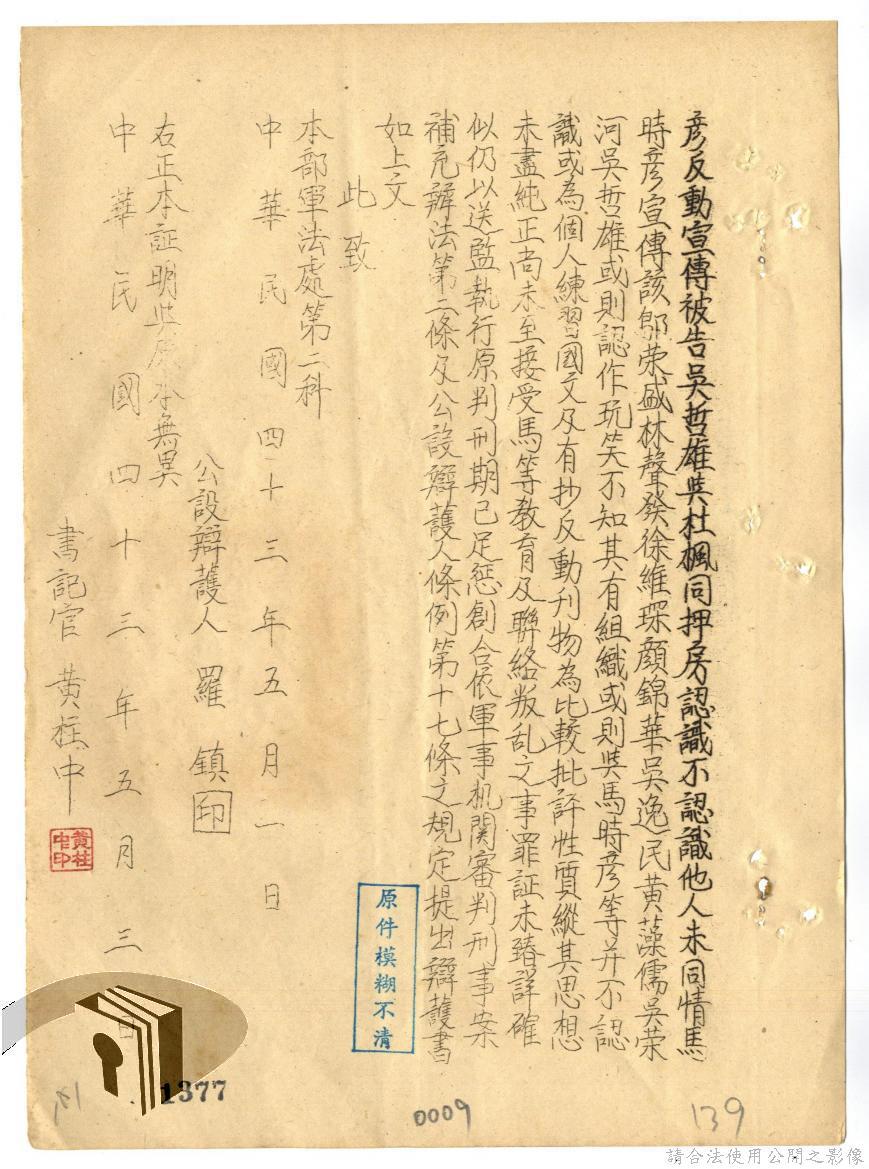 彦反動宣傳被告吳哲雄與杜楓同押房認識不認識他人未同情馬
時彦宣傳該鄔荣盛林聲發徐維琛顏錦華吳逸民黃藻儒吳荣
河吳哲雄或則認作玩笑不知其有組織或則與馬時彦等并不認
識或為個人練習國文及有抄反動刊物為比較批評性質縱其思想
未盡純正尚未至接受馬等教育及聯絡叛乱文事罪証未臻詳確
似仍以送監執行原判刑期已足惩創合依軍事机関審判刑事案
補充辦法第二條及公設辯護人條例第十七條之規定提出辯護書
如上文
此致
本部軍法處第二科
中華民國四十三年五月一日
公設辯護人 羅鎮 印
右正本証明與原本無異
中華民國四十三年五月三日
書記官 黃柱中
黃柱中印
原件模糊不清
1377
0009
139
請合法使用公開之影像